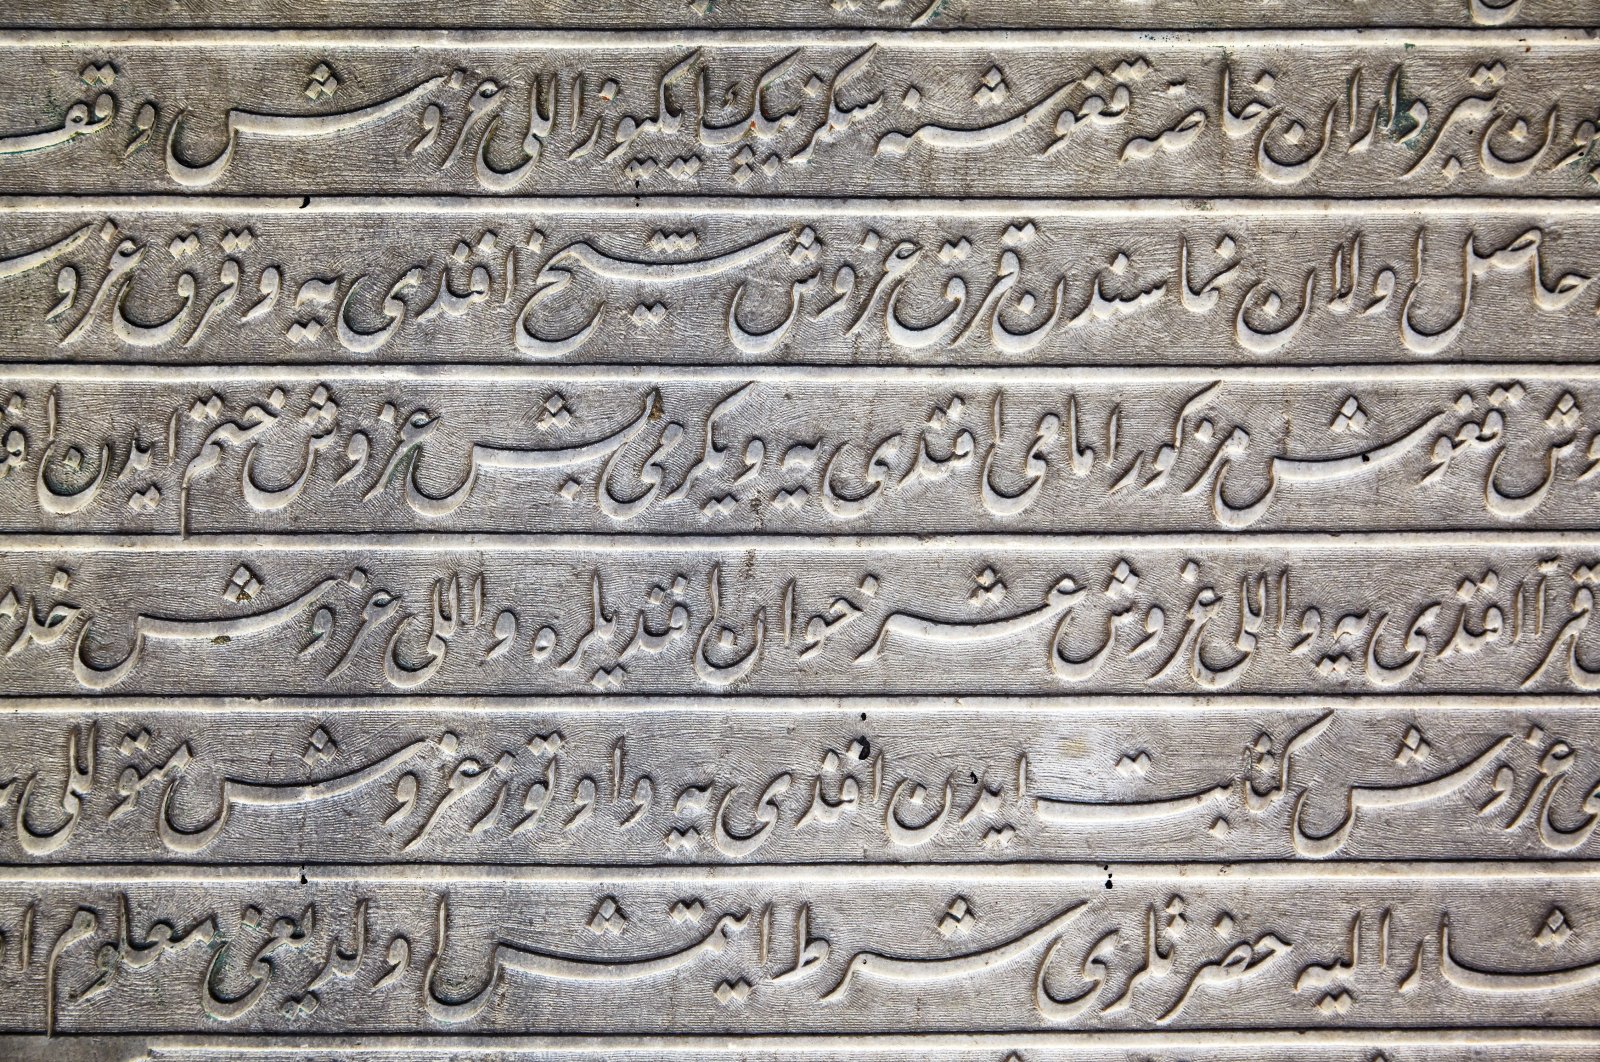 تبرداران خاصه قغوشنه سکزبیک ایکیوز اللی غروش و
حاصل اولان نماسندن قرق غروش شیخ افندی یه و قرق
قغوش مزکور امامی افندی یه و یکرمی بش غروش ختم ایدن
آلا افندی یه و اللی غروش عشر خوان افندیلره و اللی غروش
غروش کتابت ایدن افندی یه و اوتوز غروش متوللی
ار الیه حضرتلری شرط ایتمش اولدیغی معلوم